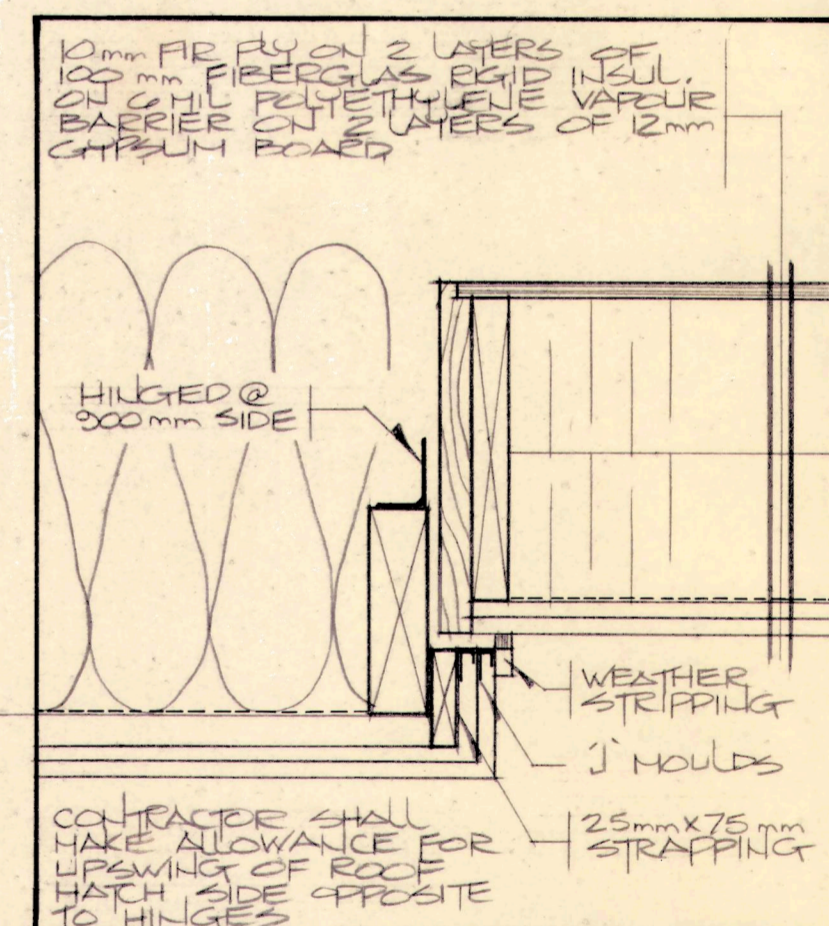 10mm FIR PLY ON 2 LAYERS OF
100 mm FIBERGLAS RIGID INSUL.
ON 6 MIL POLYETHYLENE VAPOUR
BARRIER ON 2 LAYERS OF 12mm
GYPSUM BOARD
HINGED @
900mm SIDE
WEATHER
STRIPPING
'J' MOULDS
25mm X 75 mm
STRAPPING
CONTRACTOR SHALL
MAKE ALLOWANCE FOR
UPSWING OF ROOF
HATCH SIDE OPPOSITE
TO HINGES